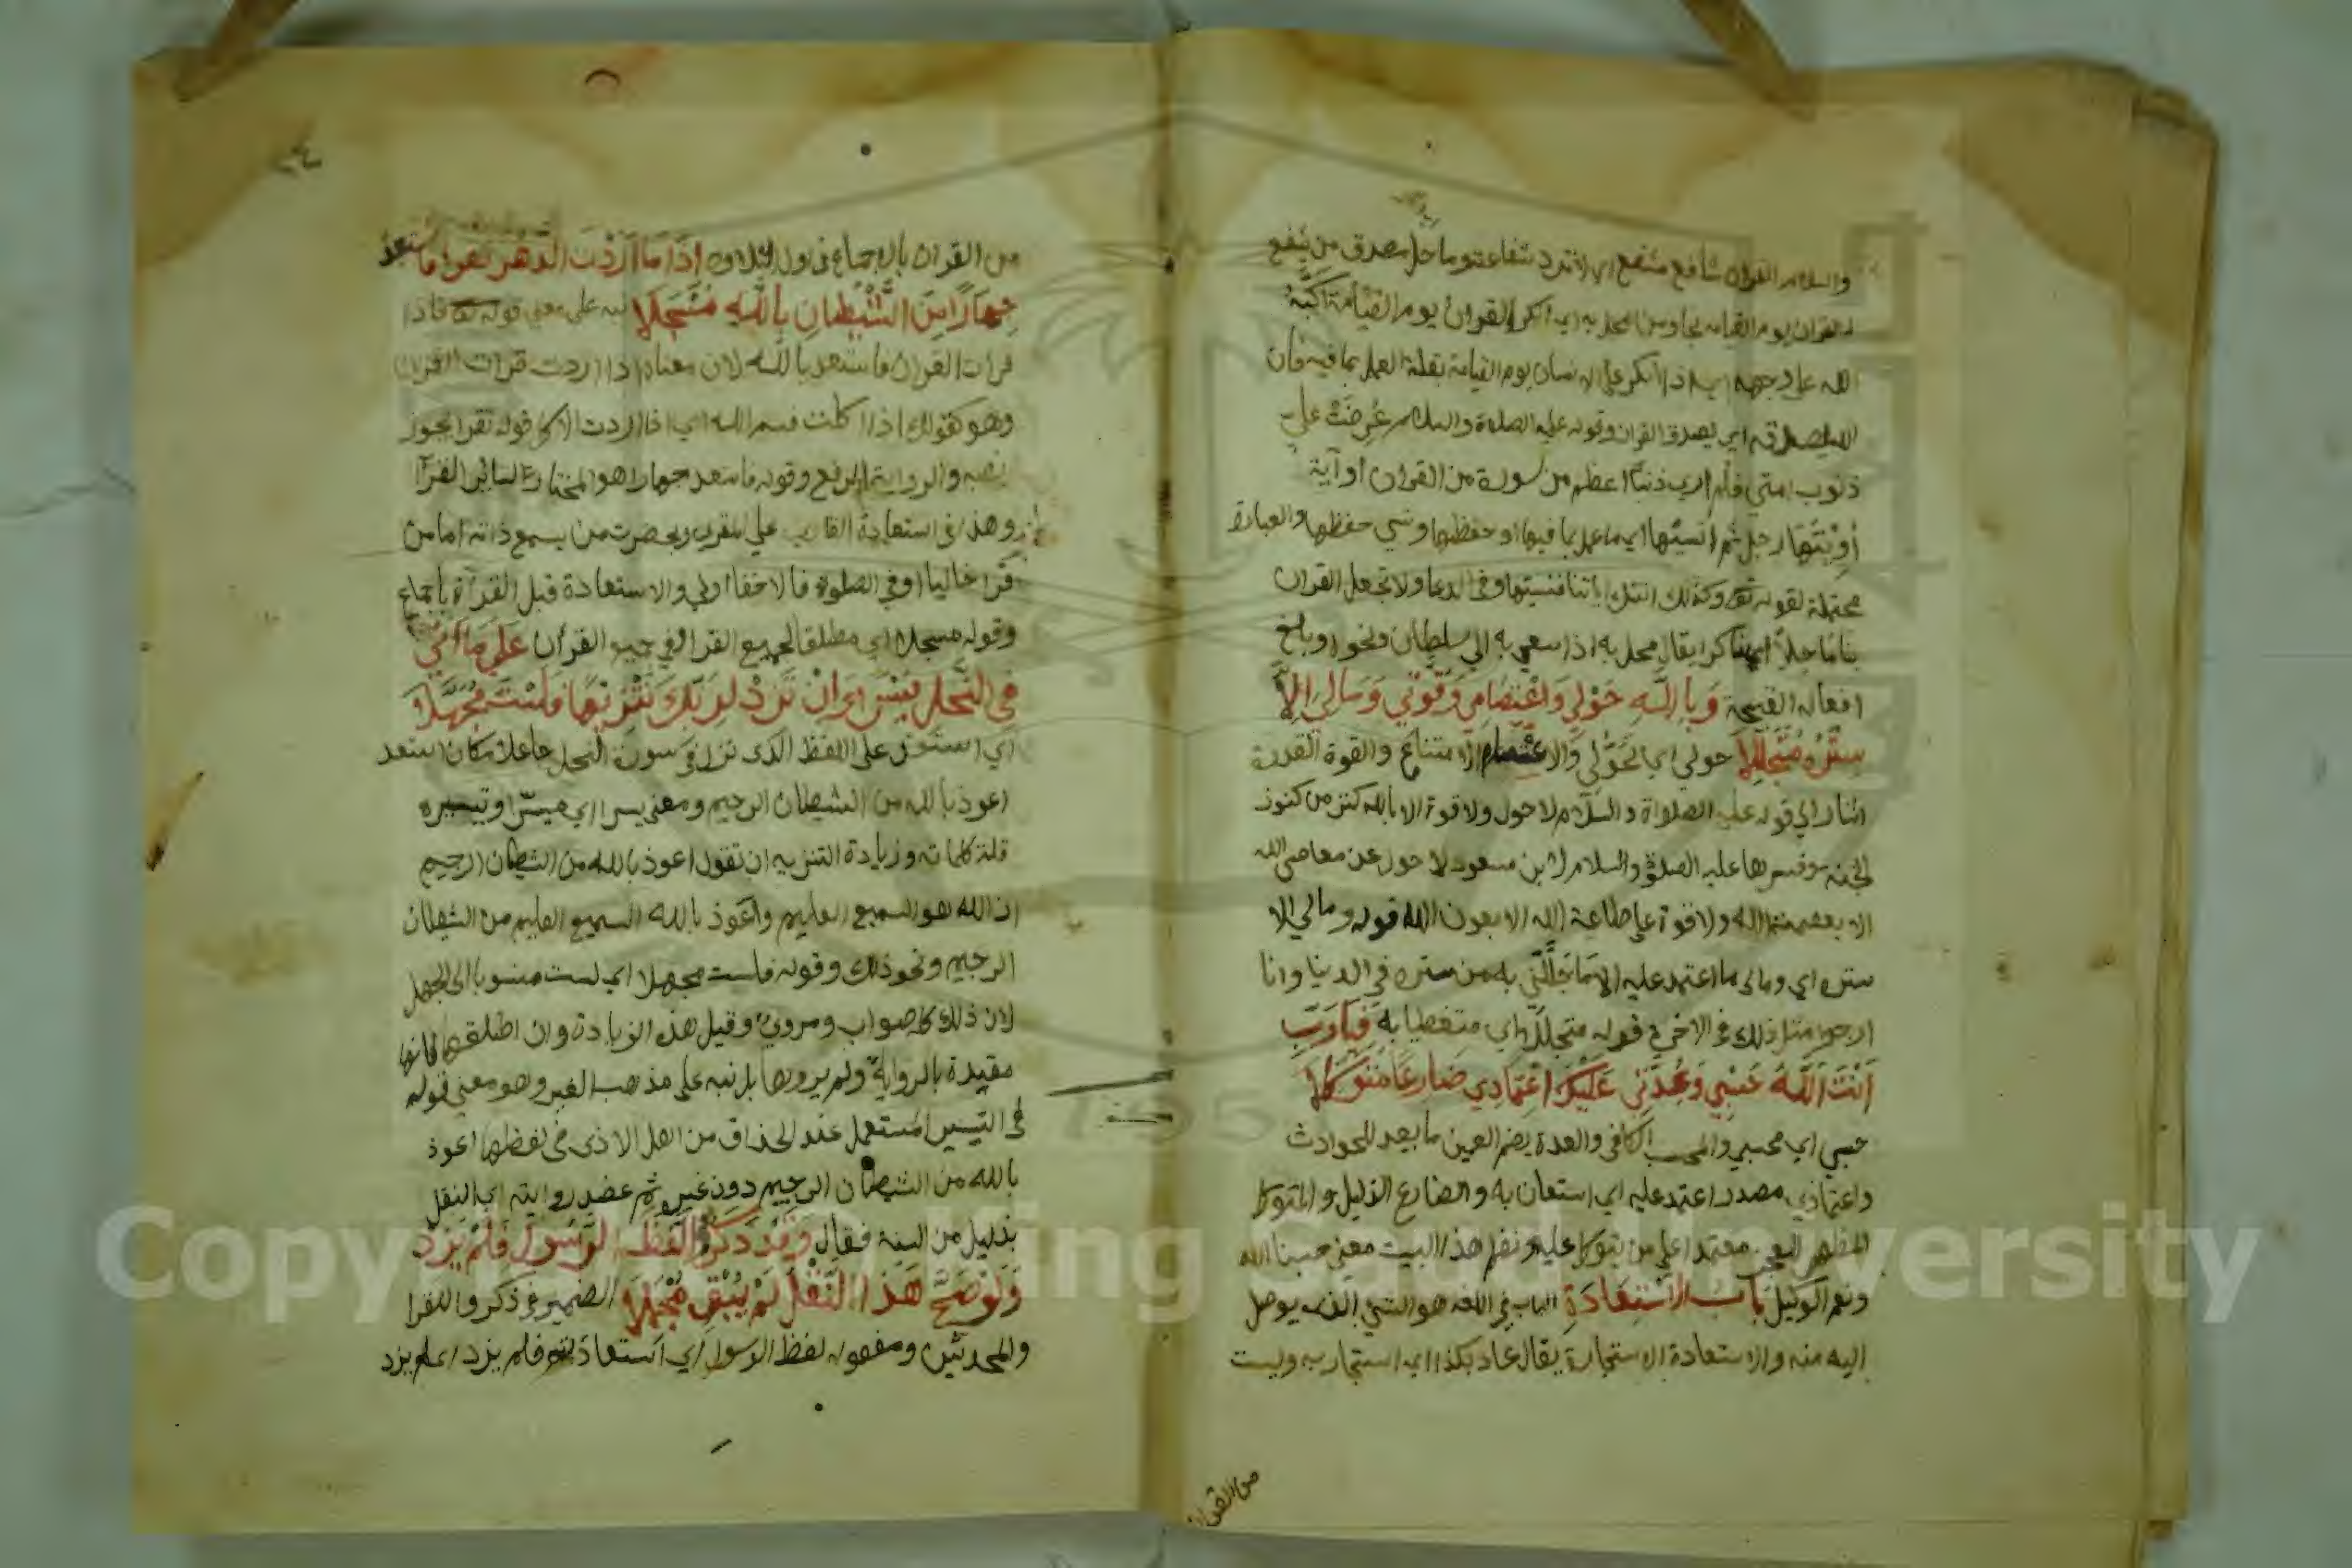 والسلام القرآن شافع مشفع اي لا ترد شفاعته وماحل مصدق من شفع
له القران يوم القيامة نجا ومن محل به اي انكر القرآن يوم القيامة اكبه
الله على وجهه اي اذا انكر على الانسان يوم القيامة بقلة العمل بما فيه فان
الله يصدقه اي يصدق القران وقوله عليه الصلاة والسلام عرضت علي
ذنوب امتي فلم ار ذنبا اعظم من سورة من القران او آية
أوتيها رجل ثم نسيها اي ما عمل بما فيها او حفظها ونسي حفظها والعبارة
محتملة لقوله تع وكذلك اتتك اياتنا فنسيتها وفي الدعا ولا تجعل القران
بنا ماحلا اي يقال محل به اذا سعى به الى سلطان ونحوه وبلغ
افعاله القبيحة وَبِاللَّهِ حَوْلِي وَاعْتِصَامِي وَقُوَّتِي وَمَالِي إِلَّا
سِتْرُهُ مُتَجَلِّلَا حولي اي تحولي والاعتصام الامتناع والقوة القدرة
اشار الى قوله عليه الصلاة والسلام لا حول ولا قوة الا بالله كنز من كنوز
الجنة وفسرها عليه الصلاة والسلام لابن مسعود لا حول عن معاصي الله
الا بعصمة الله ولا قوة على طاعة الله الا بعون الله قوله ومالي الا
ستره اي ومالي ما اعتمد عليه الا ما جللني به من ستره في الدنيا وانا
ارجو مثل ذلك في الاخرة قوله متجللا اي متغطيا به فَيَا رَبِّ
أَنْتَ اللَّهُ حَسْبِي وَعُدَّتِي عَلَيْكَ اعْتِمَادِي ضَارِعًا مُتَوَكِّلَا
حسبي اي محسبي والمحسب الكافي والعدة بضم العين ما يعد للحوادث
واعتمادي مصدر اعتمد عليه اي استعان به والضارع الذليل والمتوكل
المظهر العجز معتمدا على من يتوكل عليه ونظم هذا البيت معنى حسبنا الله
ونعم الوكيل بَابُ الِاسْتِعَاذَةِ الباب في اللغة هو الشي الذي يوصل
اليه منه والاستعاذة الاستجارة يقال عاذ بكذا اي استجار به وليست
من القران
من القران بالاجماع في اول التلاوة إِذَا مَا أَرَدْتَ الدَّهْرَ تَقْرَأُ فَاسْتَعِذْ
جِهَارًا مِنَ الشَّيْطَانِ بِاللَّهِ مُسْجَلَا نبه على معنى قوله تع فاذا
قرات القران فاستعذ بالله لان معناه اذا اردت قرات القران
وهو كقولك اذا اكلت فسم الله اي اذا اردت الاكل قوله تقرا يجوز
نصبه والرواية الرفع وقوله فاستعذ جهارا هو المختار لسائر القرآ
وهذا في استعاذة القاري علي المقري وبحضرت من يسمع ذاته اما من
قرا خاليا او في الصلوة فالاخفا اولي والاستعاذة قبل القرآة باجماع
وقوله مسجلا اي مطلقا لجميع القرا في جميع القرآن عَلَى مَا أَتَى
فِي النَّحْلِ يُسْرًا وَإِنْ تَزِدْ لِرَبِّكَ تَنْزِيهًا فَلَسْتَ مُجَهَّلَا
اي استعذ على اللفظ الذي نزل في سورة النحل جاعلا مكان استعذ
اعوذ بالله من الشيطان الرجيم ومعنى يسرا اي ميسرا وتيسيره
قلة كلماته وزيادة التنزيه ان تقول اعوذ بالله من الشيطان الرجيم
ان الله هو السميع العليم واعوذ بالله السميع العليم من الشيطان
الرجيم ونحو ذلك وقوله فلست مجهلا اي لست منسوبا الى الجهل
لان ذلك كله صواب ومروي وقيل هذه الزيادة وان اطلقها فانها
مقيدة بالرواية ولم يروها بل نبه على مذهب الغير وهو معنى قوله
في التيسير المستعمل عند الحذاق من اهل الاداء في لفظها اعوذ
بالله من الشيطان الرجيم دون غيره ثم عضد روايته اي النقل
بدليل من السنة فقال وَقَدْ ذَكَرُوا لَفْظَ الرَّسُولِ فَلَمْ يَزِدْ
وَلَوْ صَحَّ هَذَا النَّقْلُ لَمْ يُبْقِ مُجْمَلَا الضمير في ذكروا للقرا
والمحدثين ومفعوله لفظ الرسول اي استعاذته فلم يزد اي لم يزد
Copyright © King Saud University